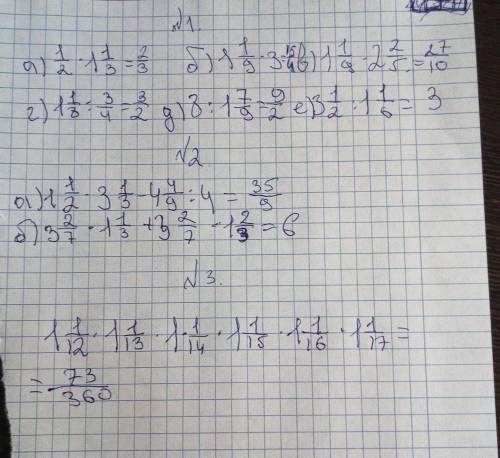 №1.
а) 1/2 · 1 1/3 = 2/3 б) 1 1/9 · 3 15/16 в) 1 1/9 · 2 2/5 = 27/10
г) 1 1/8 : 3/4 = 3/2 д) 8 : 1 7/9 = 9/2 е) 3 1/2 : 1 1/6 = 3
№2
а) 1 1/2 · 3 1/3 - 4 4/9 : 4 = 35/9
б) 3 2/7 · 1 1/3 + 3 2/7 · 1 2/3 = 6
№3.
1 1/12 · 1 1/13 · 1 1/14 · 1 1/15 · 1 1/16 · 1 1/17 =
= 73/360